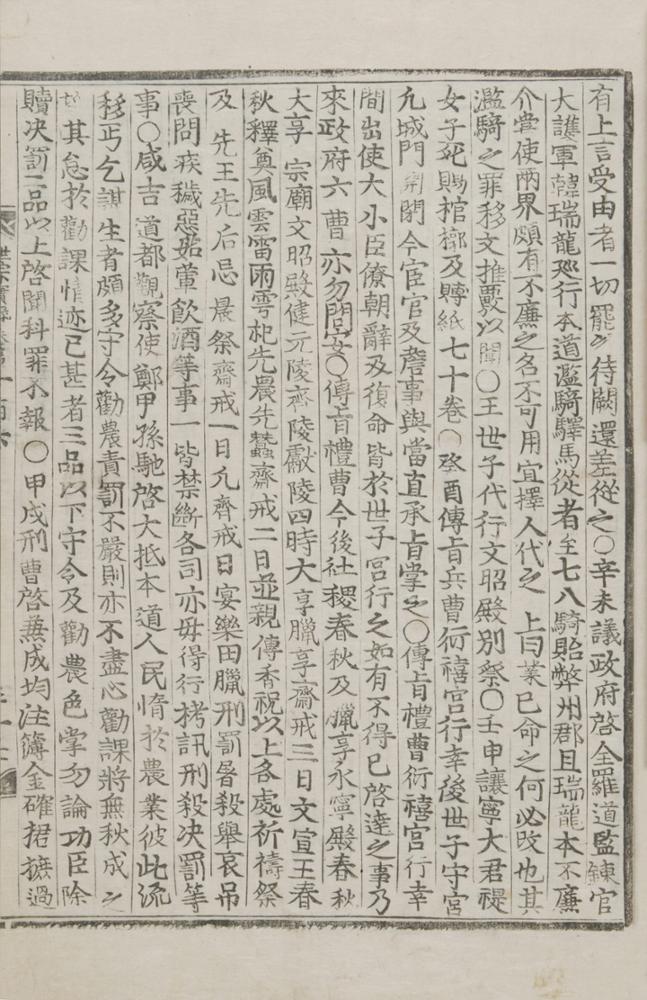 有上言受由者一切罷△待闕還差從之○辛未議政府啓全羅道監鍊官
大護軍韓瑞龍巡行本道濫騎驛馬從者至七八騎貽弊州郡且瑞龍本不廉
介嘗使兩界頗有不廉之名不可用宜擇人代之 上曰業已命之何必改也其
濫騎之罪移文推覈以聞○王世子代行文昭殿別祭○壬申讓寧大君禔
女子死賜棺槨及賻紙七十卷○癸酉傳旨兵曹衍禧宮行幸後世子守宮
凡城門開閉令宦官及詹事與當直承旨掌之○傳旨禮曹衍禧宮行幸
間出使大小臣僚朝辭及復命皆於世子宮行之如有不得已啓達之事乃
來政府六曹亦勿問安○傳旨禮曹今後社稷春秋及臘享永寧殿春秋
大享 宗廟文昭殿健元陵齊陵獻陵四時大享臘享齋戒三日文宣王春
秋釋奠風雲雷雨雩祀先農先蠶齋戒二日並親傳香祝以上各處祈禱祭
及 先王先后忌晨祭齋戒一日凡齊戒日宴樂田臘刑罰屠殺舉哀吊
喪問疾穢惡姤葷飮酒等事一皆禁斷各司亦毋得行拷訊刑殺決罰等
事○咸吉道都觀察使鄭甲孫馳啓大抵本道人民惰於農業彼此流
移丐乞謀生者頗多守令勸農責罰不嚴則亦不盡心勸課將無秋成之
其怠於勸課情迹已甚者三品以下守令及勸農色掌勿論功臣除
贖決罰二品以上啓聞科罪不報○甲戌刑曹啓兼成均注簿金確捃摭過